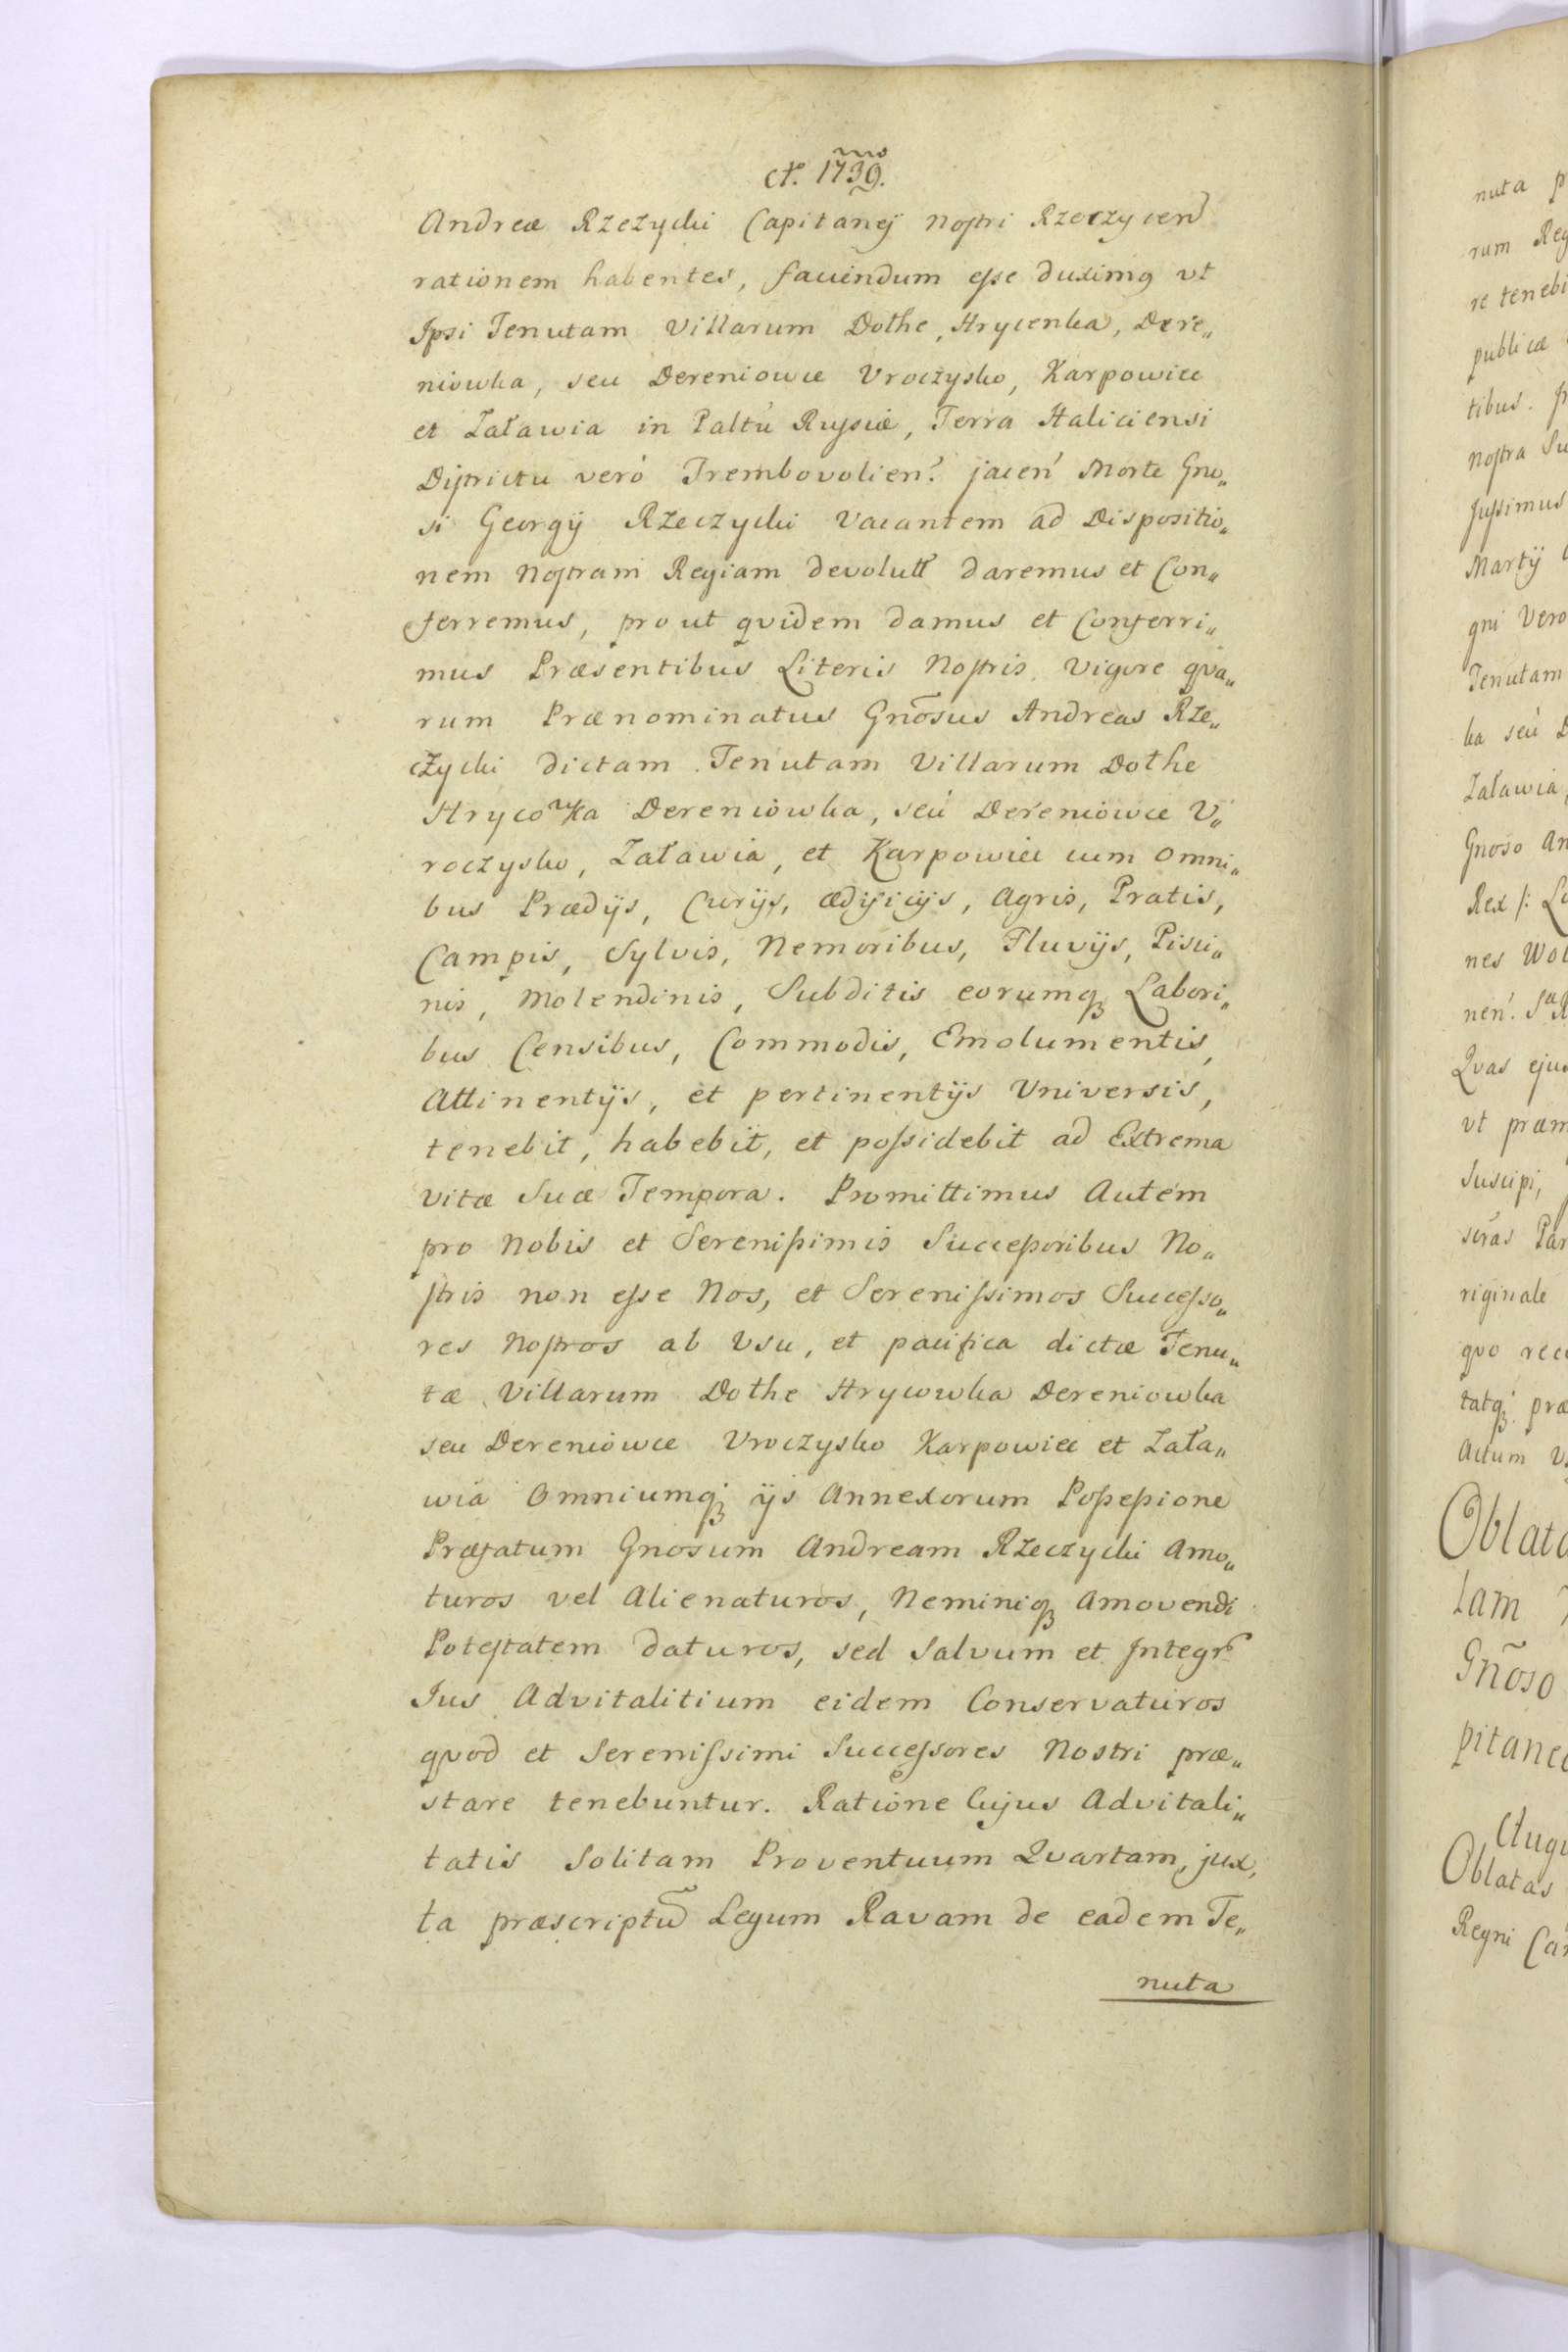 A. 1739.
mo
Andreæ Rzeczycki Capitanej Nostri Rzeczycen
rationem habentes, fauendum esse duximg vt
Ipsi Tenutam Villarum Dothe, Hrycenka, Dere„
niowka, seu Dereniowce Vroczysko, Karpowice
et Załawia in Paltu Russiæ, Terra Haliciensi
Districtu verò Trembovolien: jacen Morte Gno„
si Georgij Rzeczycki Vacantem ad Dispositio„
nem Nostram Regiam devolutt daremus et Con„
ferremus, prout qvidem damus et Conferri„
mus Præsentibus Literis Nostris. Vigore qva„
rum Prænominatus Gnõsus Andreas Rze„
czycki dictam Tenutam Villarum Dothe
Hrycowka Dereniowka, seù Dereniowce V„
roczysko, Załawia, et Karpowice cum omni„
bus Prædijs, Curijs, ædificijs, Agris, Pratis,
Campis, Sylvis, Nemoribus, Fluvijs, Pisci„
nis, Molendinis, Subditis eorumq Labori„
bus Censibus, Commodis, Emolumentis,
Attinentijs, et pertinentijs Universis,
tenebit, habebit, et possidebit ad Extrema
vitæ Suæ Tempora. Promittimus Autem
pro Nobis et Serenissimis Successoribus No„
stris non esse Nos, et Serenissimos Successo„
res Nostros ab Vsu, et pacifica dictæ Tenu„
tæ Villarum Dothe Hrycowka Dereniowka
seu Dereniowce Vroczysko Karpowice et Zała„
wia Omniumq ijs Annexorum Possessione
Præfatum Gnosum Andream Rzeczycki Amo„
turos vel Alienaturos, Neminiq Amovendi
Potestatem daturos, sed Salvum et Integr
Jus Advitalitium eidem Conservaturos
qvod et Serenissimi Successores Nostri præ„
stare tenebuntur. Ratione Cujus Advitali„
tatis Solitam Proventuum Qvartam, jux,
ta præscriptũ Legum Ravam de eadem Te„
nuta
nuta p
rum Reg
re tenebi
publicæ
tibus.
Nostra Su
Jussimus
Martij
gni Vero
Tenutam
ka seù D
Załawia,
Gnoso An
Rex /: Lo
nes Wol
nen.
Qvas ejus
vt præm
Suscipi,
Par
riginale
qvo rec
tatq præ
Actum V
Oblata
lam
Gñoso
pitane
Augu
Oblatas
Regni Ca